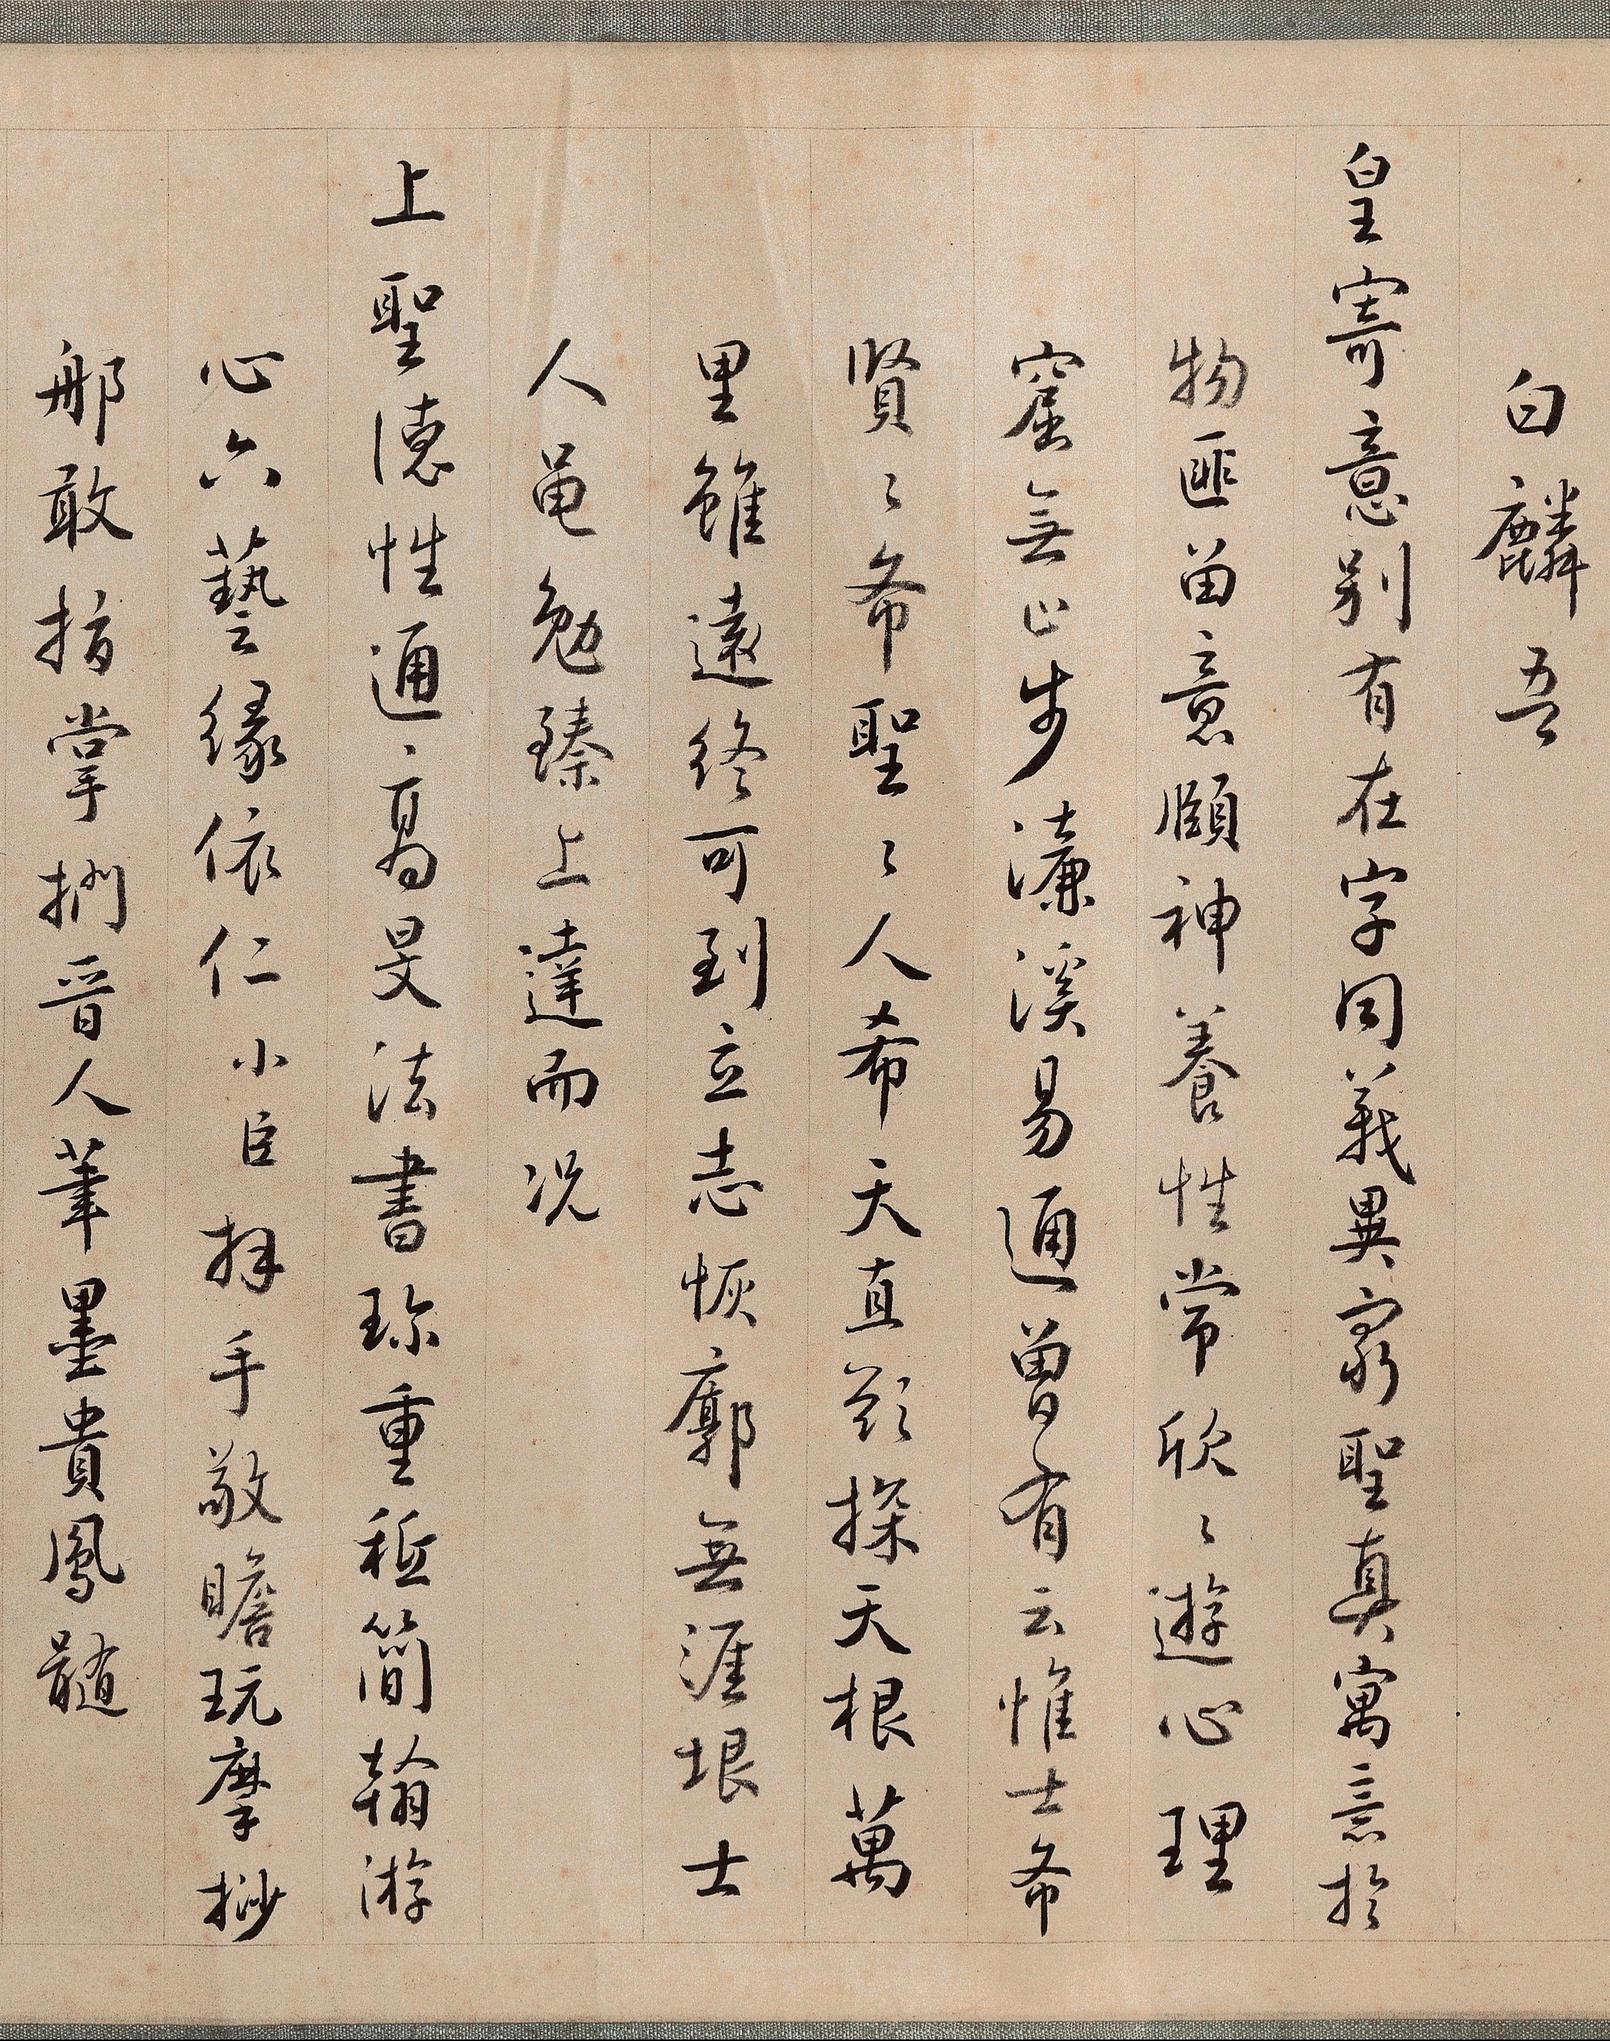 白麟吾
皇寄意別有在字同義異寡聖真寓意於
物匪留意頤神養性常欣〻遊心理
窟無止步濂溪易通曾有云惟士希
賢〻希聖〻人希天直欲探天根萬
里雖遠終可到立志恢廓無涯垠士
人黽勉臻上達而况
上聖德性通高旻法書珎重秪簡翰游
心六藝緣依仁小臣拜手敬瞻玩摩挱
那敢指掌捫晉人筆墨貴鳳髓